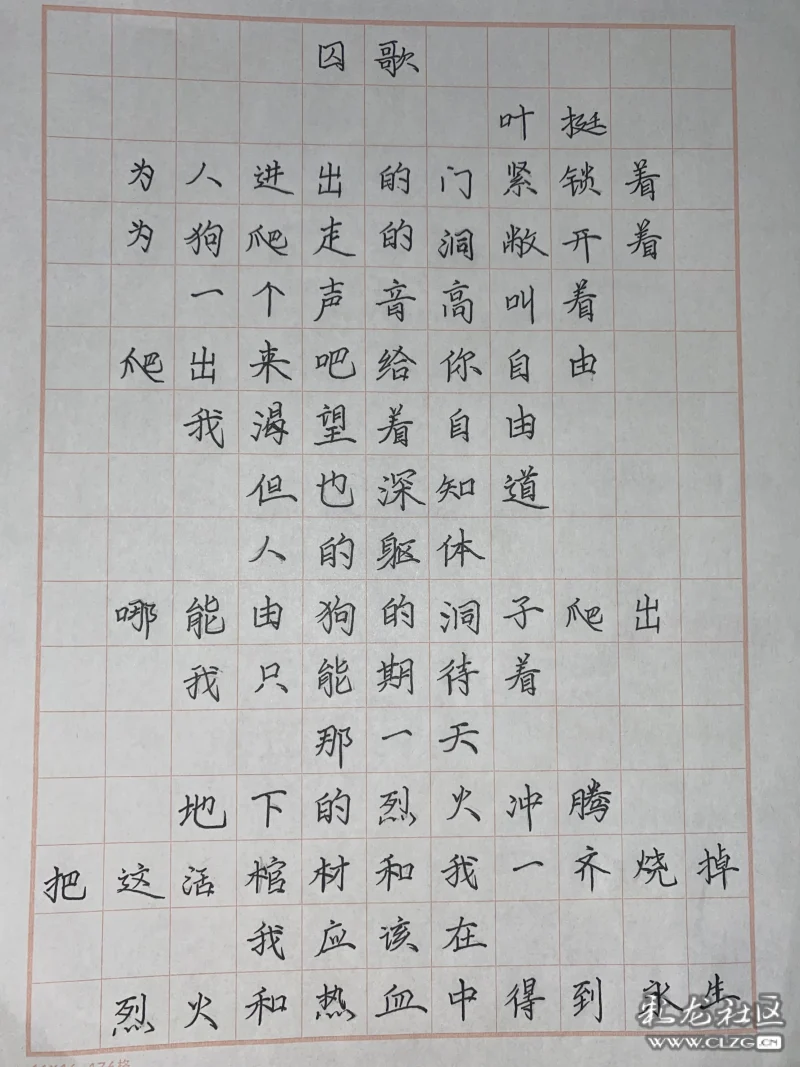 囚歌
叶挺
为人进出的门紧锁着
为狗爬走的洞敞开着
一个声音高叫着
爬出来吧给你自由
我渴望着自由
但也深知道
人的躯体
哪能由狗的洞子爬出
我只能期待着
那一天
地下的烈火冲腾
把这活棺材和我一齐烧掉
我应该在
烈火和热血中得到永生
札龙社区
WWW.CLZG.CN